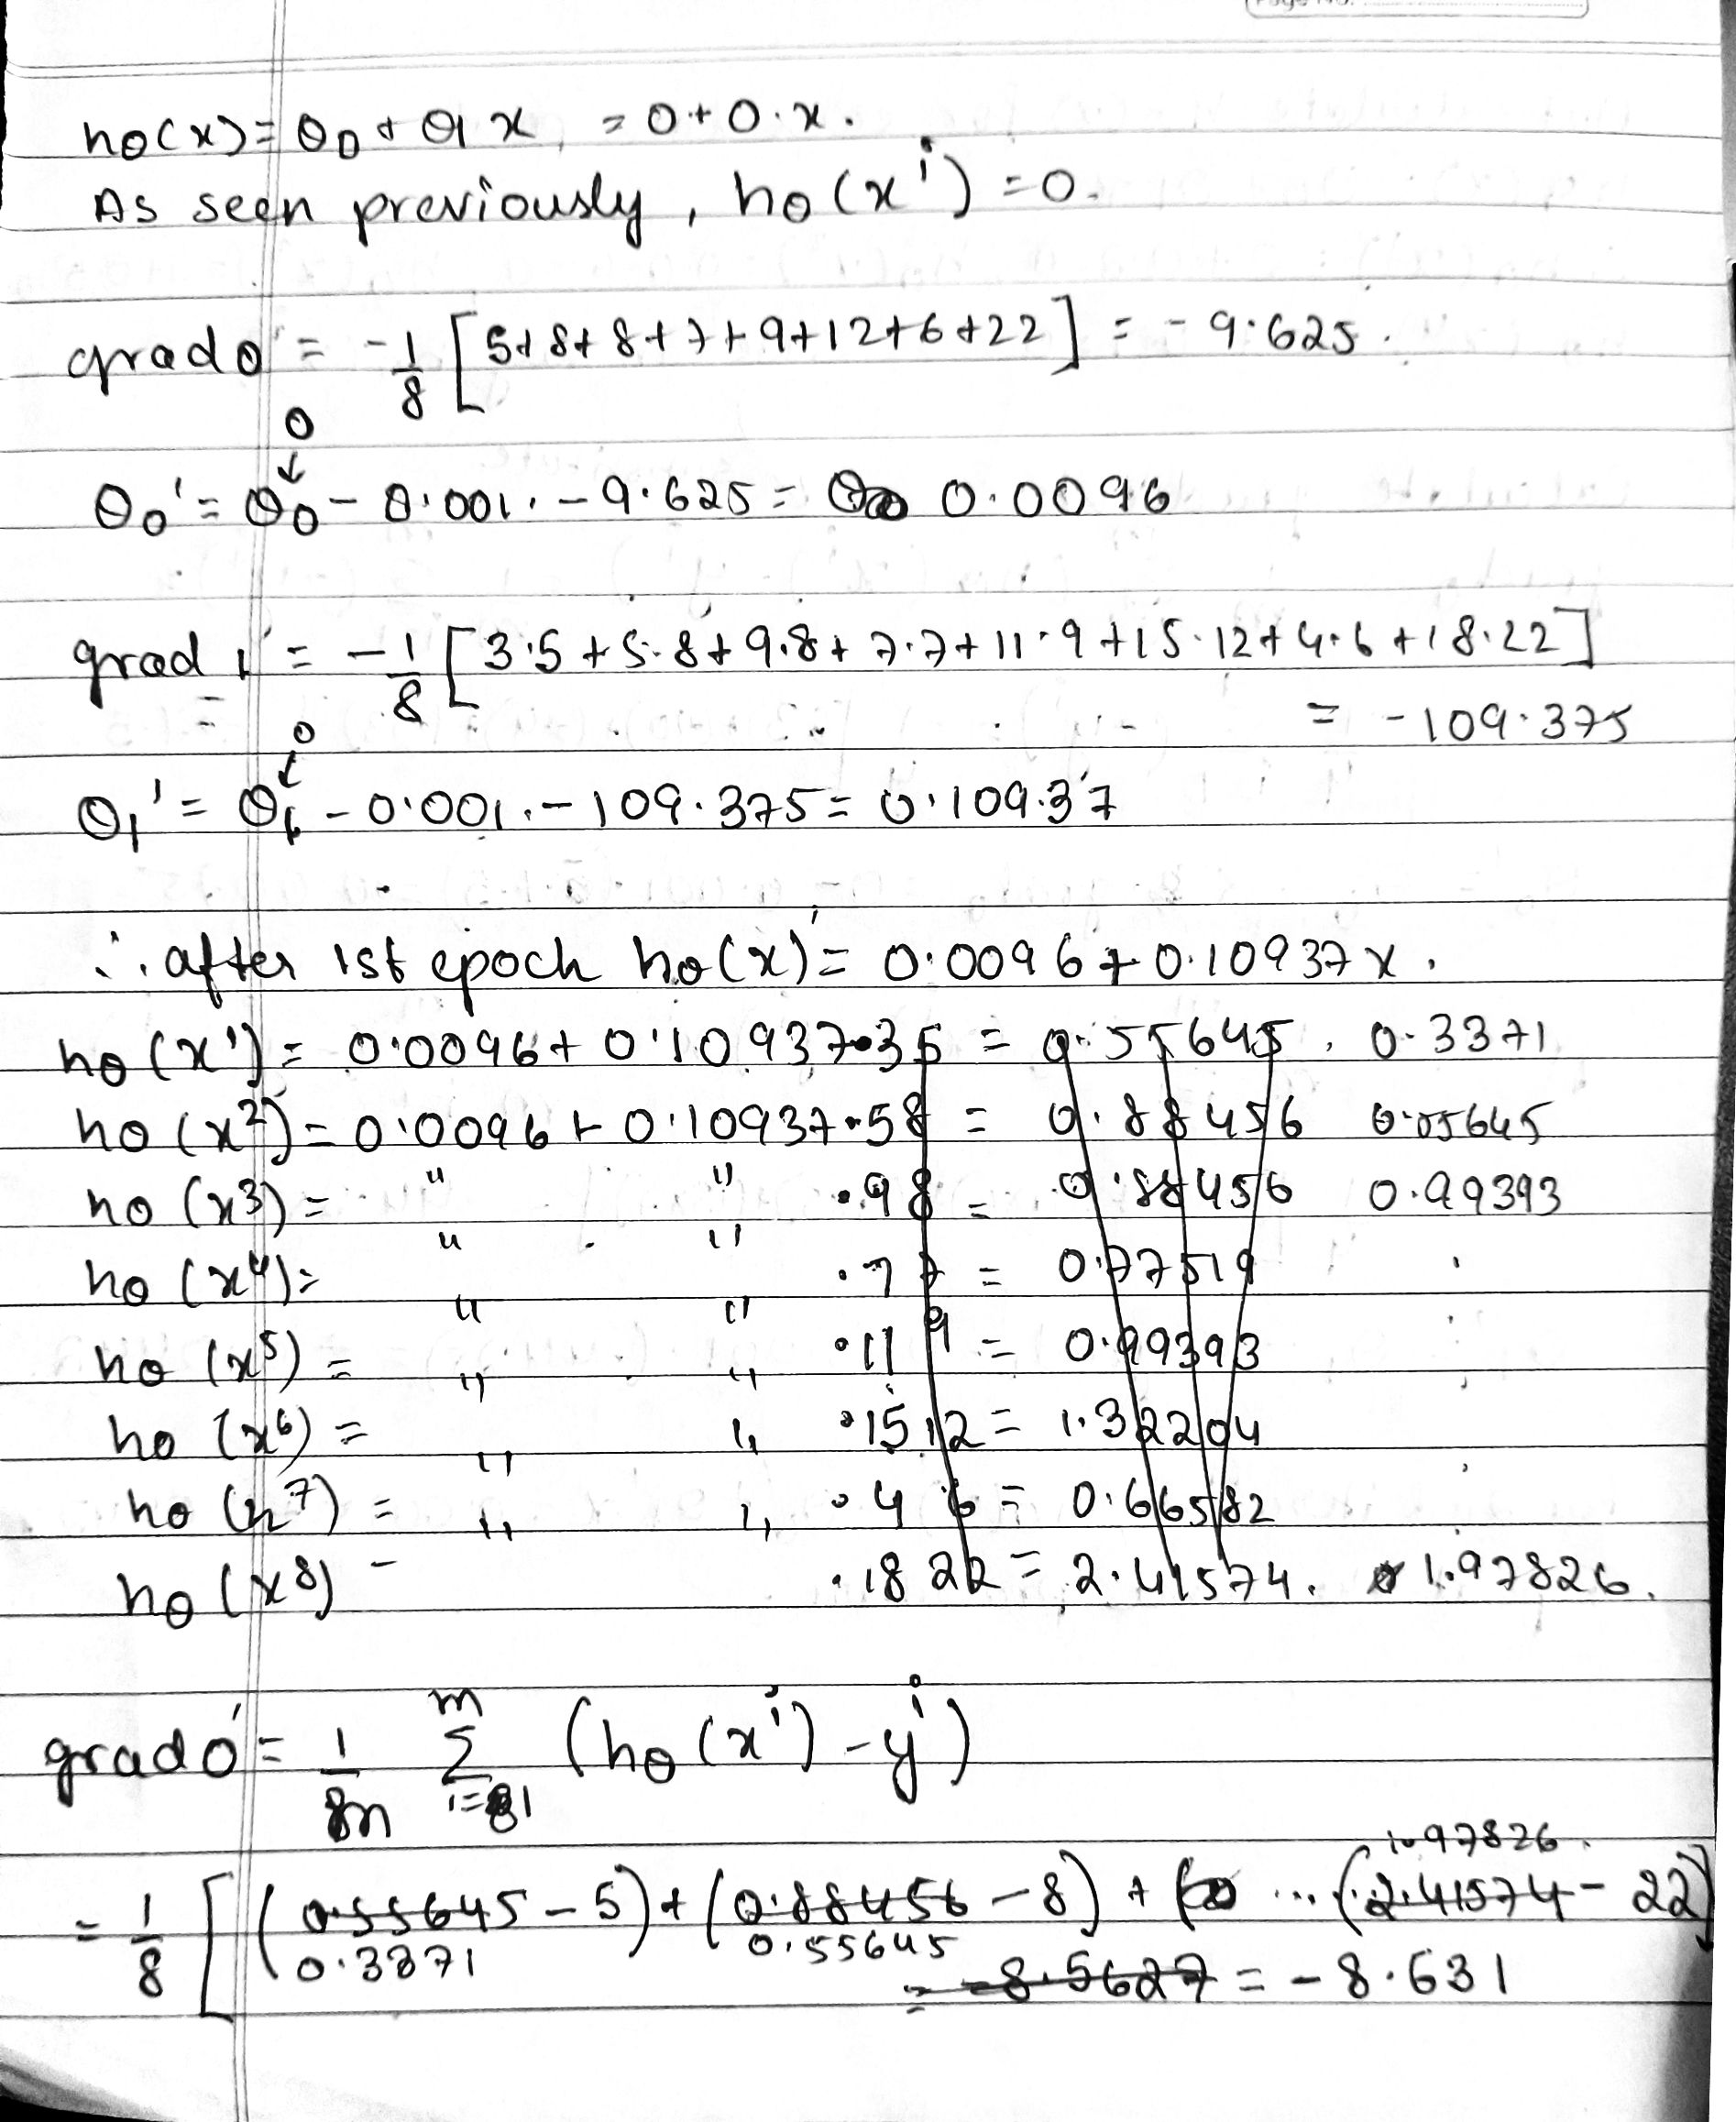 hθ(x) = θ0 + θ1 x = 0 + 0·x.
As seen previously, hθ(x^i) = 0.
grad0' = -1/8 [5+8+8+7+9+12+6+22] = -9.625.
0
↓
θ0' = θ0 - 0.001·-9.625 = 0.0096
grad1' = -1/8 [3·5+5·8+9·8+7·7+11·9+15·12+4·6+18·22]
= -109.375
0
↓
θ1' = θ1 - 0.001·-109.375 = 0.109.37
∴ after 1st epoch hθ(x)' = 0.0096 + 0.10937x.
hθ(x^1) = 0.0096 + 0.10937·3 5 = 0.55645, 0.3371
hθ(x^2) = 0.0096 + 0.10937·5 8 = 0.88456 0.55645
hθ(x^3) = " " ·9 8 = 0.88456 0.99393
hθ(x^4) = " " ·7 7 = 0.77519 .
hθ(x^5) = " " ·11 9 = 0.99393 .
hθ(x^6) = " " ·15 12 = 1.32204 .
hθ(x^7) = " " ·4 6 = 0.66582 .
hθ(x^8) = ·18 22 = 2.41574. 1.97826.
grad0' = 1/m Σ_{i=1}^{m} (hθ(x^i) - y^i)
1.97826
= 1/8 [(0.55645 - 5) + (0.88456 - 8) + ... (2.41574 - 22)]
0.3371 0.55645
= -8.5627 = -8.631